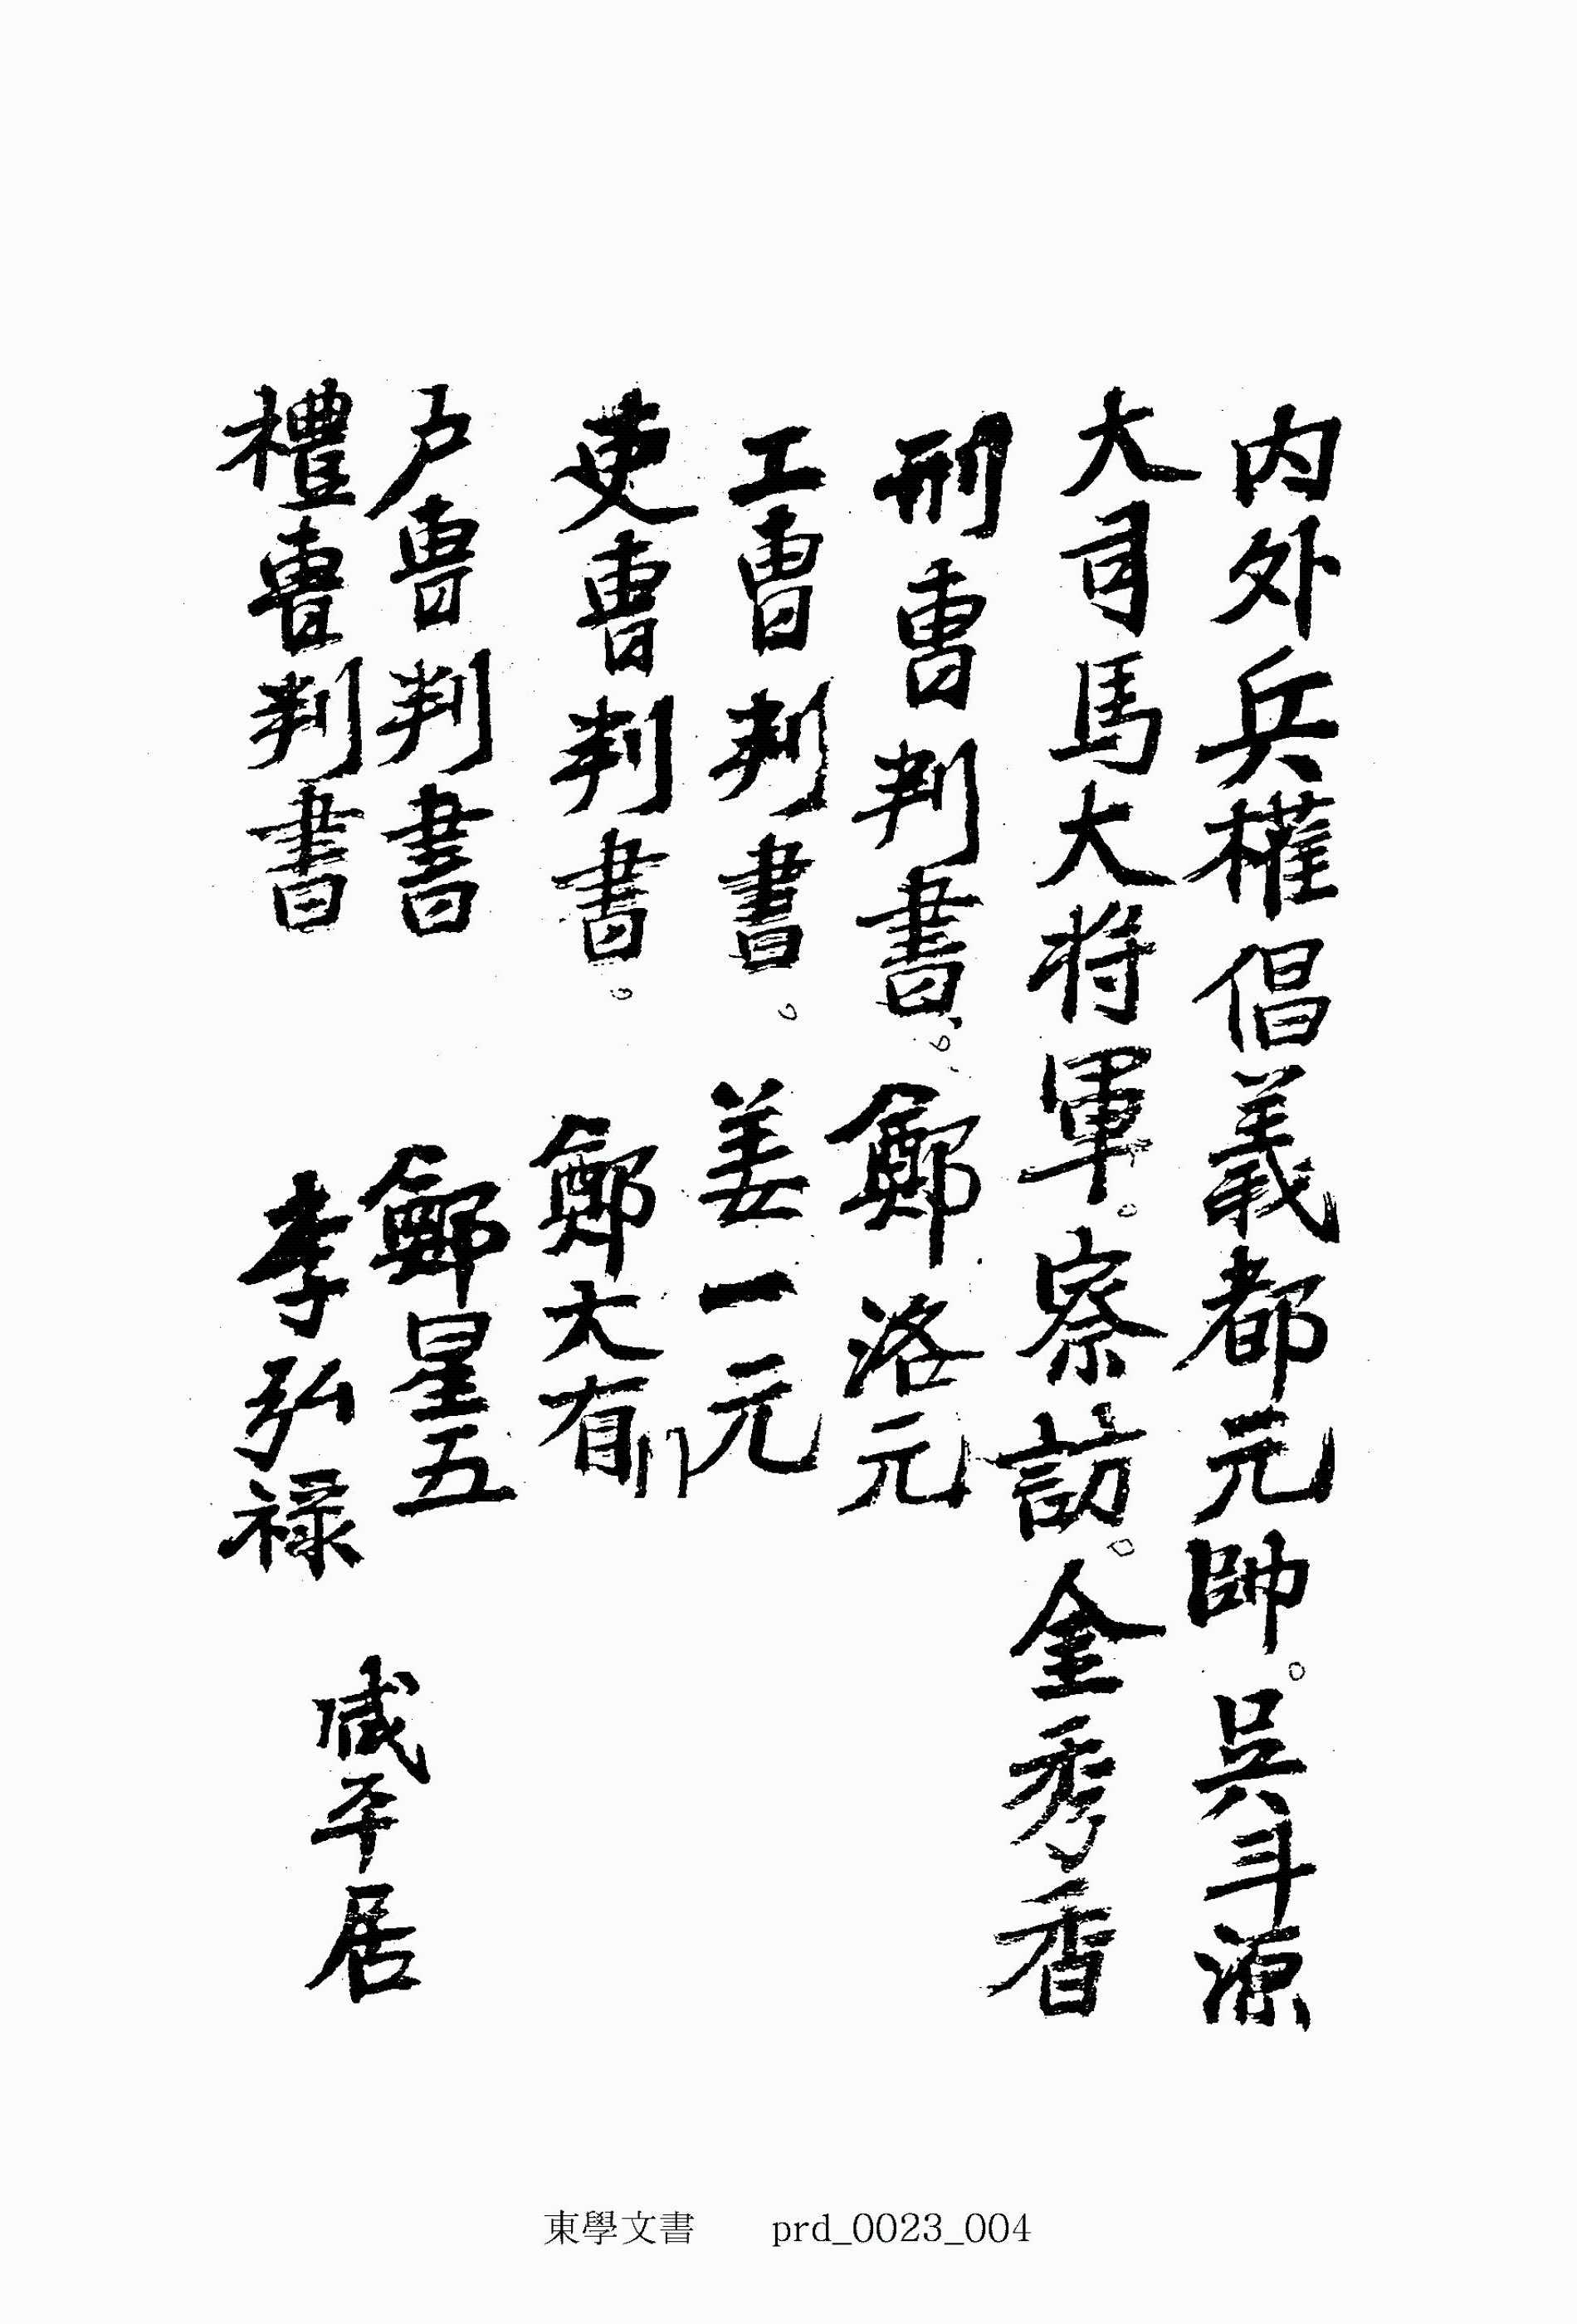 内外兵權倡義都元帥。吳斗源
大司馬大将軍。察訪。金秀香
刑曺判書。鄭洛元
工曺判書。姜一元
吏曺判書。鄭大有
戶曺判書 鄭星五
禮曺判書 李弘祿
咸平居
東學文書 prd_0023_004